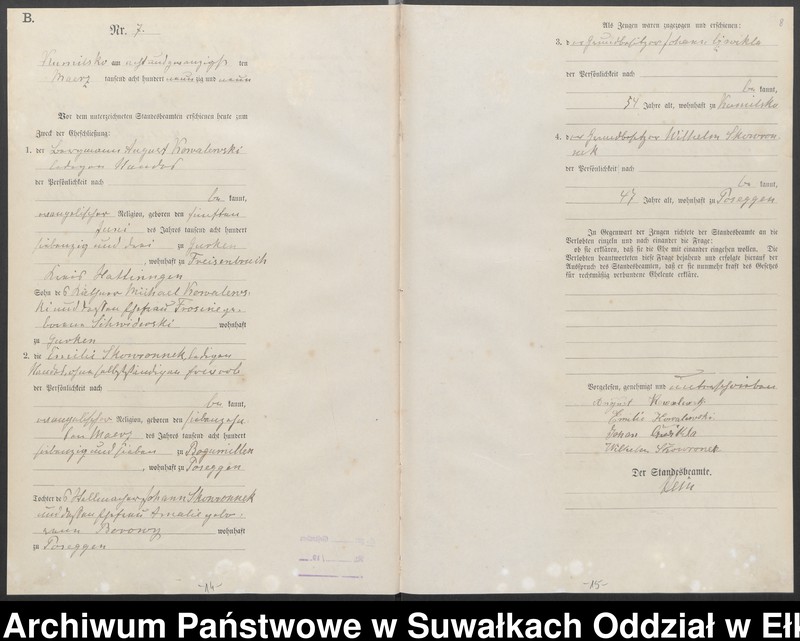 B.
Nr. 7.
Kumilsko am acht und zwanzigsten
Maerz tausend acht hundert neunzig und neun
Vor dem unterzeichneten Standesbeamten erschienen heute zum
Zweck der Eheschließung:
1. der Bergmann August Kowalewski
ledigen Standes
der Persönlichkeit nach
be kannt,
evangelischer Religion, geboren den fünften
Juni des Jahres tausend acht hundert
siebenzig und drei zu Gurken
, wohnhaft zu Freisenbruch
Kreis Hattingen
Sohn des Käthner Michael Kowalews-
ki und dessen Ehefrau Frosine ge-
borene Schwiderski wohnhaft
zu Gurken
2. die Emilie Skowronnek ledigen
Standes
der Persönlichkeit nach
be kannt,
evangelischer Religion, geboren den siebenzehn-
ten Maerz des Jahres tausend acht hundert
siebenzig und sieben zu Bogumillen
, wohnhaft zu Poseggen
Tochter des Stellmacher Johann Skowronnek
und dessen Ehefrau Amalie gebo-
rene Borowy wohnhaft
zu Poseggen
-14-
8
Als Zeugen waren zugezogen und erschienen:
3. der Grundbesitzer Johann
der Persönlichkeit nach
be kannt,
54 Jahre alt, wohnhaft zu Kumilsko
4. der Grundbesitzer Wilhelm Skowron-
nek
der Persönlichkeit nach
be kannt,
47 Jahre alt, wohnhaft zu Poseggen
In Gegenwart der Zeugen richtete der Standesbeamte an die
Verlobten einzeln und nach einander die Frage:
ob sie erklären, daß sie die Ehe mit einander eingehen wollen. Die
Verlobten beantworteten diese Frage bejahend und erfolgte hierauf der
Ausspruch des Standesbeamten, daß er sie nunmehr kraft des Gesetzes
für rechtmäßig verbundene Eheleute erkläre.
Vorgelesen, genehmigt und unterschrieben
August Kowalewski
Emilie Kowalewski
Johan
Wilhelm Skowronek
Der Standesbeamte.
-15-
Archiwum Państwowe w Suwałkach Oddział w Eł